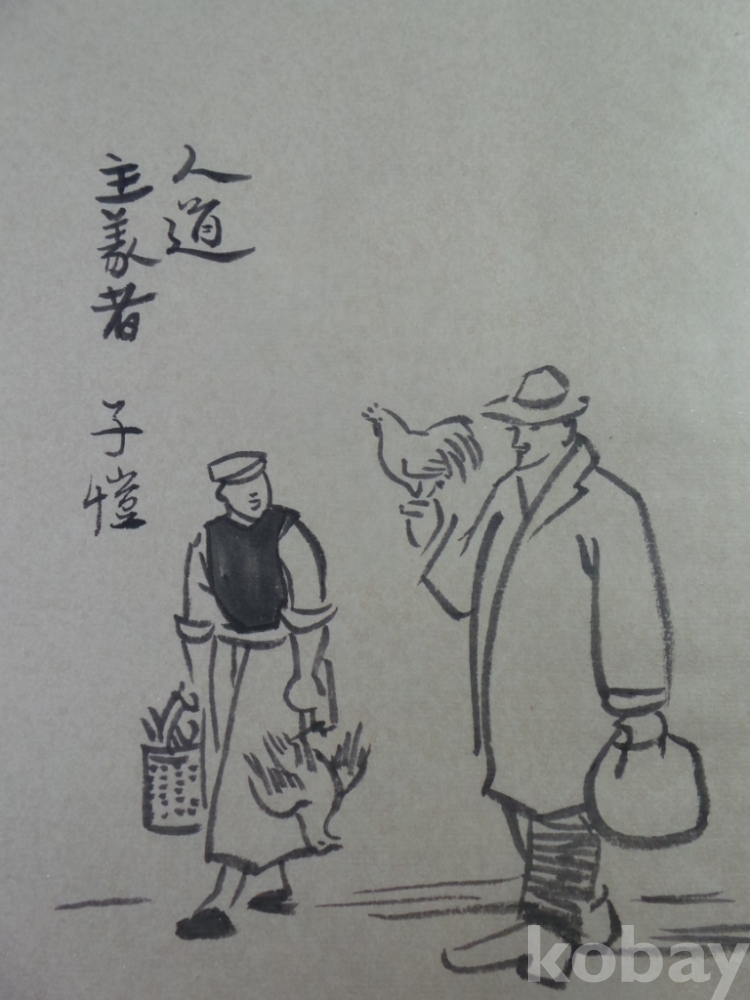 人道
主義者 子愷
kobay